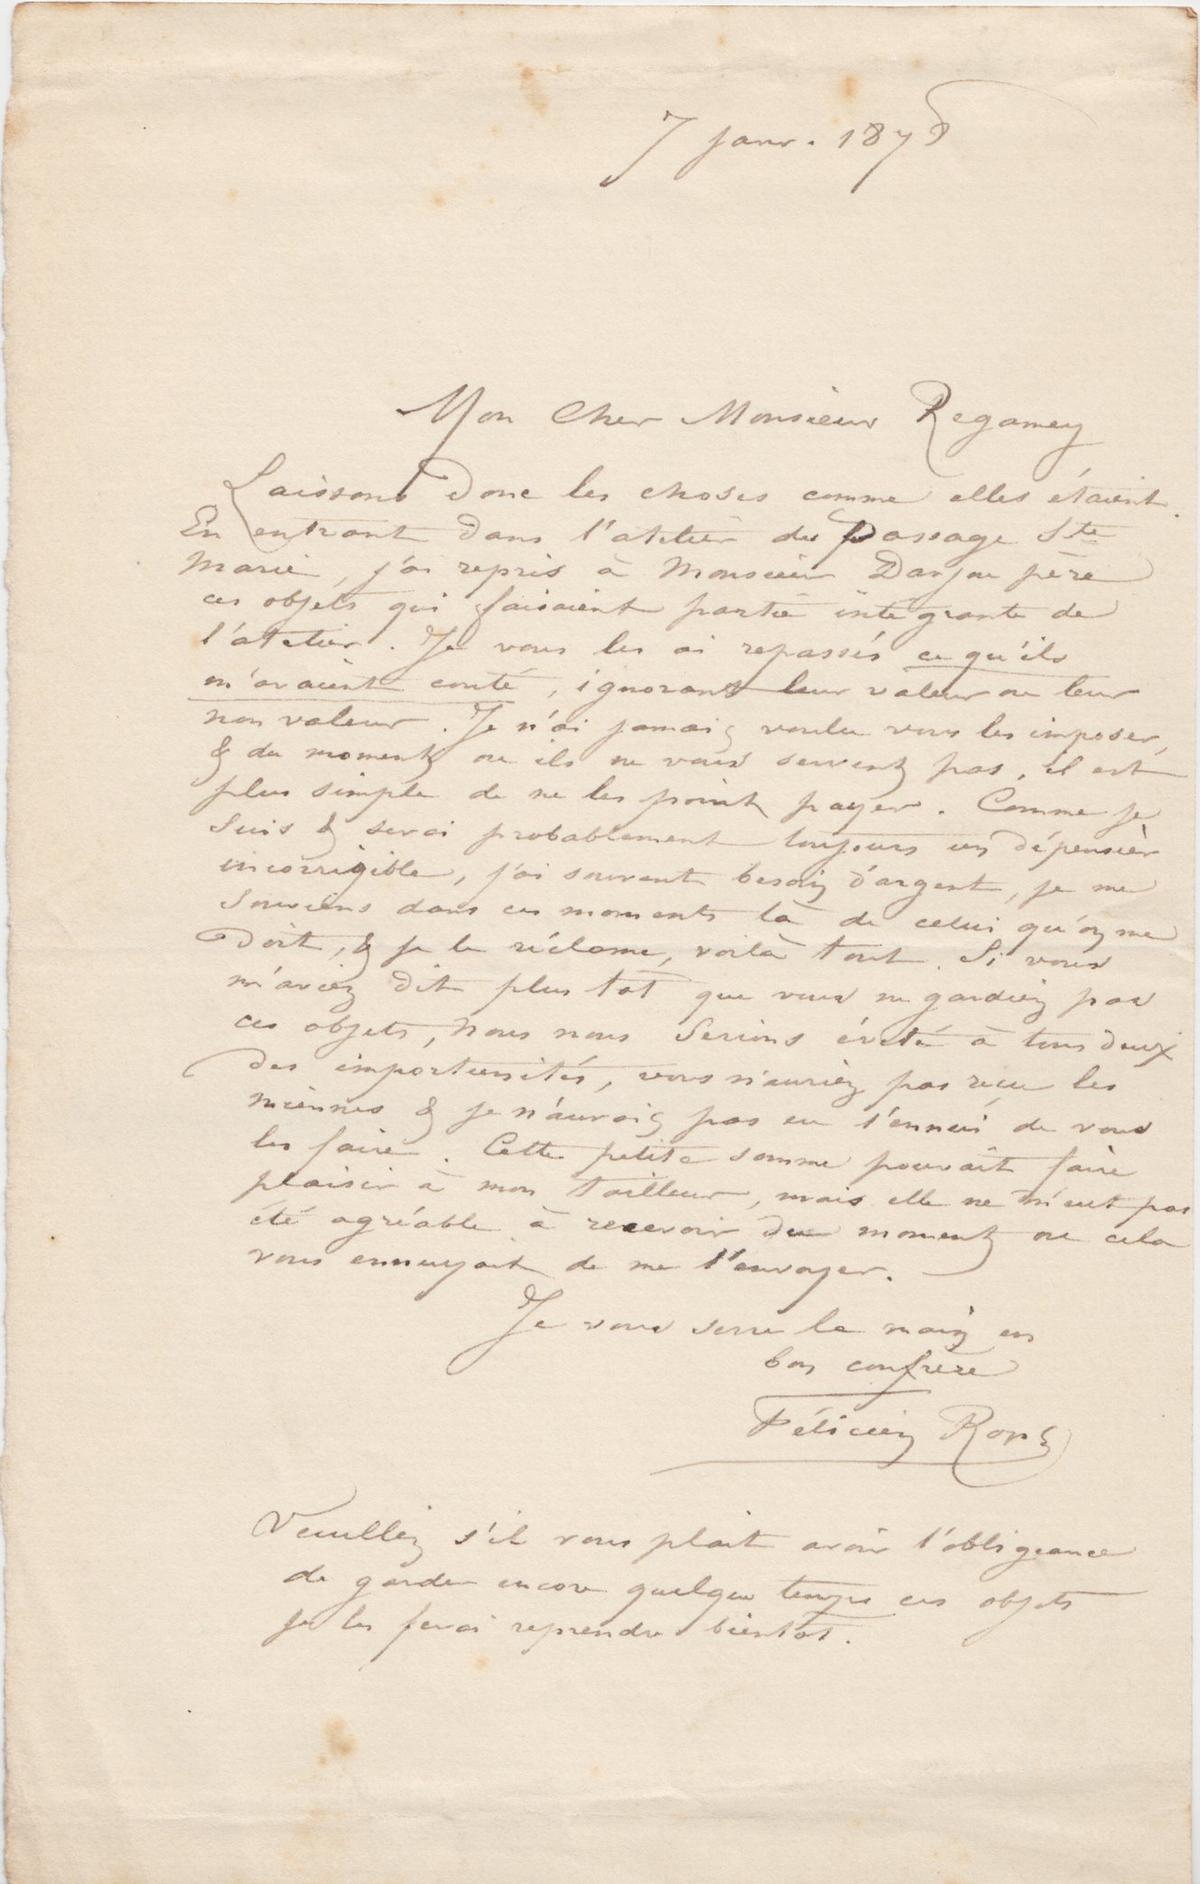 7 janv. 1878
Mon Cher Monsieur Regamey
Laissons donc les choses comme elles étaient.
En entrant dans l'atelier du Passage Ste
Marie, j'ai repris à Monsieur Danjou père
ces objets qui faisaient partie intégrante de
l'atelier. Je vous les ai repassés ce qu'ils
m'avaient couté, ignorant leur valeur ou leur
non valeur. Je n'ai jamais voulu vous les imposer,
& du moment ou ils ne vous servent pas, il est
plus simple de ne les point payer. Comme je
suis & serai probablement toujours un dépensier
incorrigible, j'ai souvent besoin d'argent, je me
souviens dans ces moments là de celui qu'on me
doit, & je le réclame, voilà tout. Si vous
m'aviez dit plus tôt que vous ne gardiez pas
ces objets, nous nous serions évité à tous deux
des importunités, vous n'auriez pas reçu les
miennes & je n'aurais pas eu l'ennui de vous
les faire. Cette petite somme pouvait faire
plaisir à mon tailleur, mais elle ne m'eut pas
été agréable à recevoir du moment ou cela
vous ennuyait de me l'envoyer.
Je vous serre la main en
bon confrère
Félicien Rops
Veuillez s'il vous plait avoir l'obligeance
de garder encore quelque temps ces objets
je les ferai reprendre bientôt.